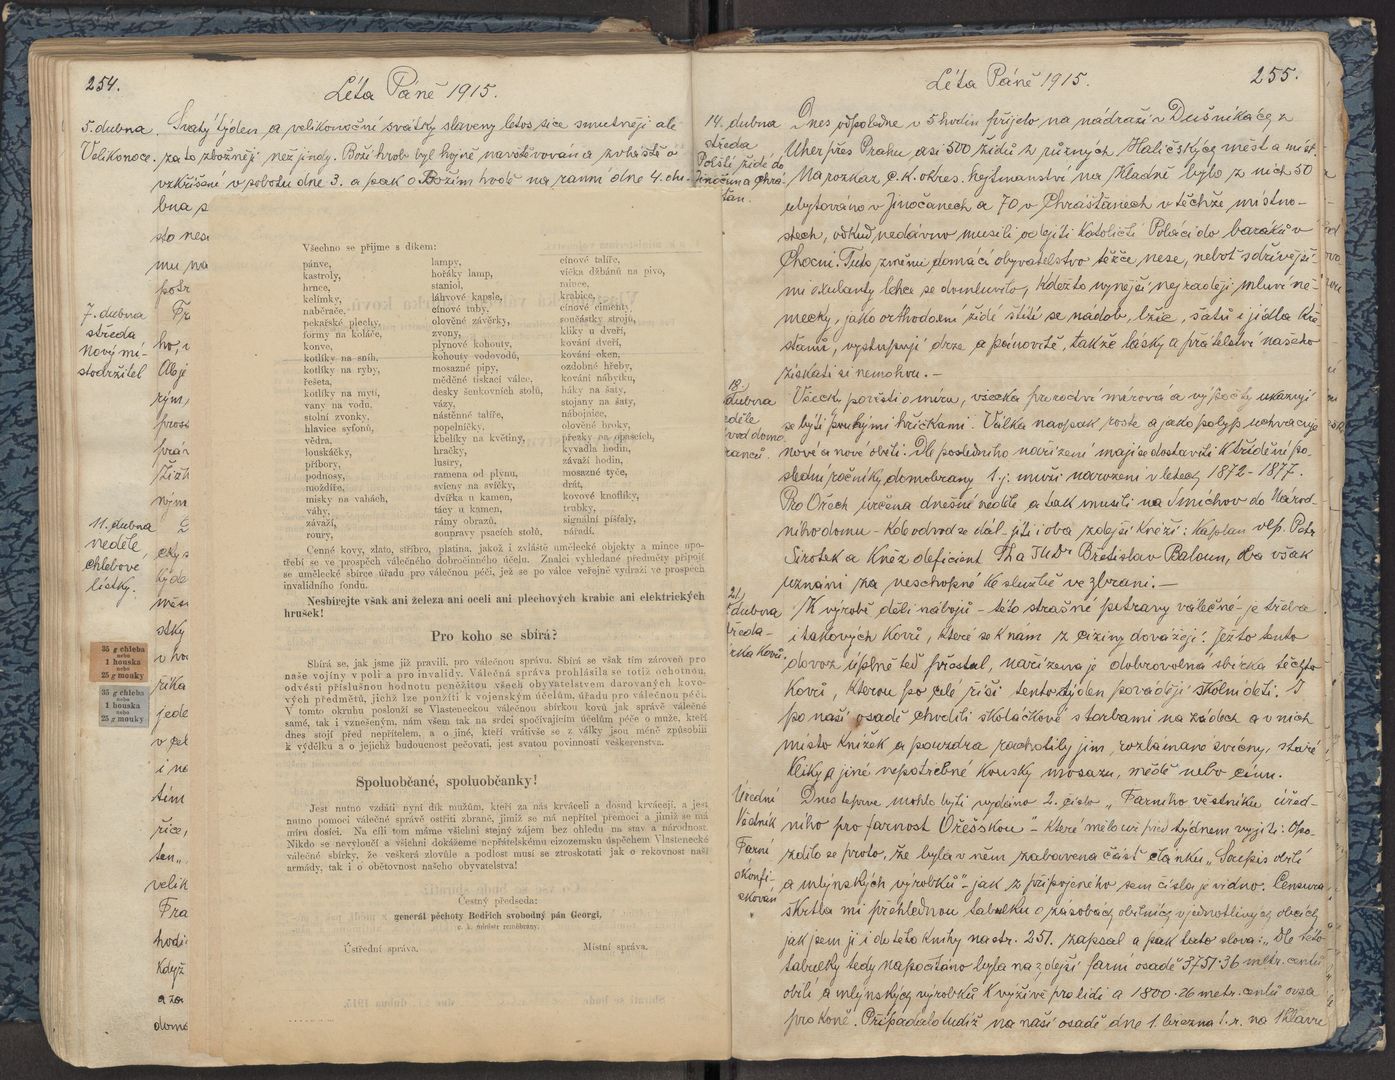 254.
Léta Páně 1915.
5. dubna
Velikonoce.
Svatý týden a velikonoční svátky slaveny letos sice smutněji ale
za to zbožněji než jindy. Boží hrob byl hojně navštěvován a zvláště o
vzkříšení v sobotu dne 3. a pak o Božím hodě na ranní dne 4. du-
bna p
sto nesm
mu na
potr
7. dubna
středa
nový mí-
stodržitel
11. dubna
neděle,
chlebové
lístky.
35 g chleba
nebo
1 houska
nebo
25 g mouky
35 g chleba
nebo
1 houska
nebo
25 g mouky
Všechno se přijme s díkem:
pánve,
kastroly,
hrnce,
kelímky,
naběrače,
pekařské plechy,
formy na koláče,
konve,
kotlíky na sníh,
kotlíky na ryby,
řešeta,
kotlíky na mytí,
vany na vodu,
stolní zvonky,
hlavice syfonů,
vědra,
louskáčky,
příbory,
podnosy,
moždíře,
misky na vahách,
váhy,
závaží,
roury,
lampy,
hořáky lamp,
staniol,
láhvové kapsle,
cínové tuby,
olověné závěrky,
zvony,
plynové kohouty,
kohouty vodovodů,
mosazné pípy,
měděné tiskací válce,
desky šenkovních stolů,
vázy,
nástěnné talíře,
popelníčky,
kbelíky na květiny,
hračky,
lustry,
ramena od plynu,
svícny na svíčky,
dvířka u kamen,
tácy u kamen,
rámy obrazů,
soupravy psacích stolů,
cínové talíře,
víčka džbánů na pivo,
mince,
krabice,
cínové cimenty,
součástky strojů,
kliky u dveří,
kování dveří,
kování oken,
ozdobné hřeby,
kování nábytku,
háky na šaty,
stojany na šaty,
nábojnice,
olověné broky,
přezky na opascích,
kyvadla hodin,
závaží hodin,
mosazné tyče,
drát,
kovové knoflíky,
trubky,
signální píšťaly,
nářadí.
Cenné kovy, zlato, stříbro, platina, jakož i zvláště umělecké objekty a mince upo-
třebí se ve prospěch válečného dobročinného účelu. Znalci vyhledané předměty připojí
se umělecké sbírce úřadu pro válečnou péči, jež se po válce veřejně vydraží ve prospěch
invalidního fondu.
Nesbírejte však ani železa ani oceli ani plechových krabic ani elektrických
hrušek!
Pro koho se sbírá?
Sbírá se, jak jsme již pravili, pro válečnou správu. Sbírá se však tím zároveň pro
naše vojíny v poli a pro invalidy. Válečná správa prohlásila se totiž ochotnou,
odvésti příslušnou hodnotu peněžitou všech obyvatelstvem darovaných kovo-
vých předmětů, jichž lze použíti k vojenským účelům, úřadu pro válečnou péči.
V tomto okruhu poslouží se Vlasteneckou válečnou sbírkou kovů jak správě válečné
samé, tak i vznešeným, nám všem tak na srdci spočívajícím účelům péče o muže, kteří
dnes stojí před nepřítelem, a o jiné, kteří vrátivše se z války jsou méně způsobilí
k výdělku a o jejichž budoucnost pečovati, jest svatou povinností veškerenstva.
Spoluobčané, spoluobčanky!
Jest nutno vzdáti nyní dík mužům, kteří za nás krváceli a dosud krvácejí, a jest
nutno pomoci válečné správě ostřiti zbraně, jimiž se má nepřítel přemoci a jimiž se má
míru dosíci. Na cíli tom máme všichni stejný zájem bez ohledu na stav a národnost.
Nikdo se nevyloučí a všichni dokážeme nepřátelskému cizozemsku úspěchem Vlastenecké
válečné sbírky, že veškerá zlovůle a podlost musí se ztroskotati jak o rekovnost naší
armády, tak i o obětovnost našeho obyvatelstva!
Čestný předseda:
generál pěchoty Bedřich svobodný pán Georgi,
c. k. ministr zeměbrany.
Ústřední správa.
Místní správa.
Léta Páně 1915.
255.
14. dubna
středa
Polští židé do
Jinočan a Chrá-
šťan.
Dnes odpoledne v 5 hodin přijelo na nádraží v Dušníkách z
Uher přes Prahu asi 500 židů z různých Haličských měst a míst.
Na rozkaz c. k. okres. hejtmanství na Kladně bylo z nich 50
ubytováno v Jinočanech a 70 v Chrášťanech v těchže místno-
stech, odkud nedávno musili odejíti katoličtí Poláci do baráků v
Chocni. Tuto změnu domácí obyvatelstvo těžce nese, neboť s dřívější-
mi exulanty lehce se domluvilo, kdežto nynější nejraději mluví ně-
mecky, jako orthodoxní židé štítí se nádob, lžic, šatů i jídla kře-
sťanů, vystupují drze a pánovitě, takže lásky a přátelství našeho
získati si nemohou. –
18.
dubna
neděle
odvod domo-
branců.
Všecky pověsti o míru, všecka proroctví mírová a výpočty ukazují
se býti pouhými hříčkami. Válka naopak roste a jako polyp uchvacuje
nové a nové oběti. Dle posledního nařízení mají se dostaviti k třídění po-
slední ročníky domobrany t. j. muži narození v letech 1872–1877.
Pro Ořech určena dnešní neděle a tak musili na Smíchov do Národ-
ního domu – kde odvod se dál – jíti i oba zdejší kněží: kaplan vlp. Petr
Sirotek a kněz deficient Th a JUDr Břetislav Baloun, oba však
uznáni za neschopné ke službě ve zbrani. –
21.
dubna
středa –
sbírka kovů.
K výrobě děl i nábojů – této strašné potravy válečné – je třeba
i takových kovů, které se k nám z ciziny dovážejí. Ježto tento
dovoz úplně teď přestal, nařízena je dobrovolná sbírka těchto
kovů, kterou po celé říši tento týden provádějí školní děti. I
po naší osadě chodili školáčkové s torbami na zádech a v nich
místo knížek a pouzdra rachotily jim rozlámané svícny, staré
kliky a jiné nepotřebné kousky mosazu, mědě nebo cínu.
Úřední
Věstník
Farní
skonfi-
skován
Dnes teprve mohlo býti vydáno 2. číslo „Farního věstníku úřed-
ního pro farnost Ořešskou“ – které mělo už před týdnem vyjíti: Opo-
zdilo se proto, že byla v něm zabavena část článku „Soupis obilí
a mlýnských výrobků“ – jak z připojeného sem čísla je vidno. Censura
škrtla mi přehlednou tabulku o zásobách obilních v jednotlivých obcích,
jak jsem ji i do této knihy na str. 251. zapsal a pak tato slova: „Dle této
tabulky tedy napočítáno bylo na zdejší farní osadě 3751·36 metr. centů
obilí a mlýnských výrobků k výživě pro lidi a 1800·26 metr. centů ovsa
pro koně. Připadalo tudíž na naší osadě dne 1. března t. r. na 1 hlavu